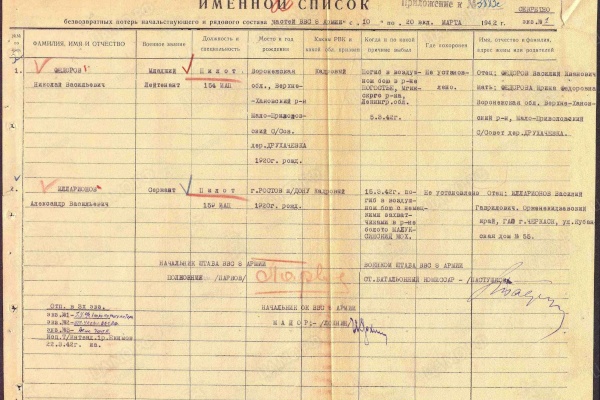 ИМЕННОЙ СПИСОК
Приложение к №
СЕКРЕТНО
безвозвратных потерь начальствующего и рядового состава частей ВВС 8 Армии с 10 по 20 мая. МАРТА 1942 г. экз.№1
ФАМИЛИЯ, ИМЯ И ОТЧЕСТВО
Военное звание
Должность и специальность
Место и год рождения
Каким РВК и какой обл. призван
Когда и по какой причине выбыл
Где похоронен
Имя, отчество и фамилия, адрес жены или родителей
1.
ФЕДОРОВ
Николай Васильевич
Младший
Лейтенант
Пилот
154 ИАП
Воронежская
обл., Верхне-
Хавский р-н
Мало-Приваловский С/Сов.
дер. ДРУКАЧЕВКА
1920г. рожд.
Кадровый
Погиб в воздушном бою в р-не
ПОГОСТЬЕ, Мгинского р-на,
Ленингр.обл.
5.3.42г.
Не установлено.
Отец: ФЕДОРОВ Василий Иванович
мать: ФЕДОРОВА Ирина Федоровна
Воронежская обл. Верхне-Хавский
р-н, Мало-Приваловский
С/Совет дер. ДРУКАЧЕВКА
2.
ИЛЛАРИОНОВ
Александр Васильевич
Сержант
Пилот
159 ИАП
г.РОСТОВ н/ДОНУ
1920г. рожд.
Кадровый
15.3.42г. погиб в воздушном бою с немецкими захватчиками в р-не
болото МАЛУКСИНСКИЙ МОХ.
Не установлено
Отец: ИЛЛАРИОНОВ Василий
Гаврилович. Орджоникидзевский
край, ГАО г.ЧЕРКЕСК, ул.Кубанская дом № 55.
НАЧАЛЬНИК ШТАБА ВВС 8 АРМИИ
ПОЛКОВНИК
ВОЕНКОМ ШТАБА ВВС 8 АРМИИ
СТ.БАТАЛЬОННЫЙ КОМИССАР - /ПАСТУШКОВ/
НАЧАЛЬНИК ОК ВВС 8 АРМИИ
МАЙОР:-
Отп. в 3х экз.
экз.№1-
экз.№2-
экз.№3-
22.3.42г.